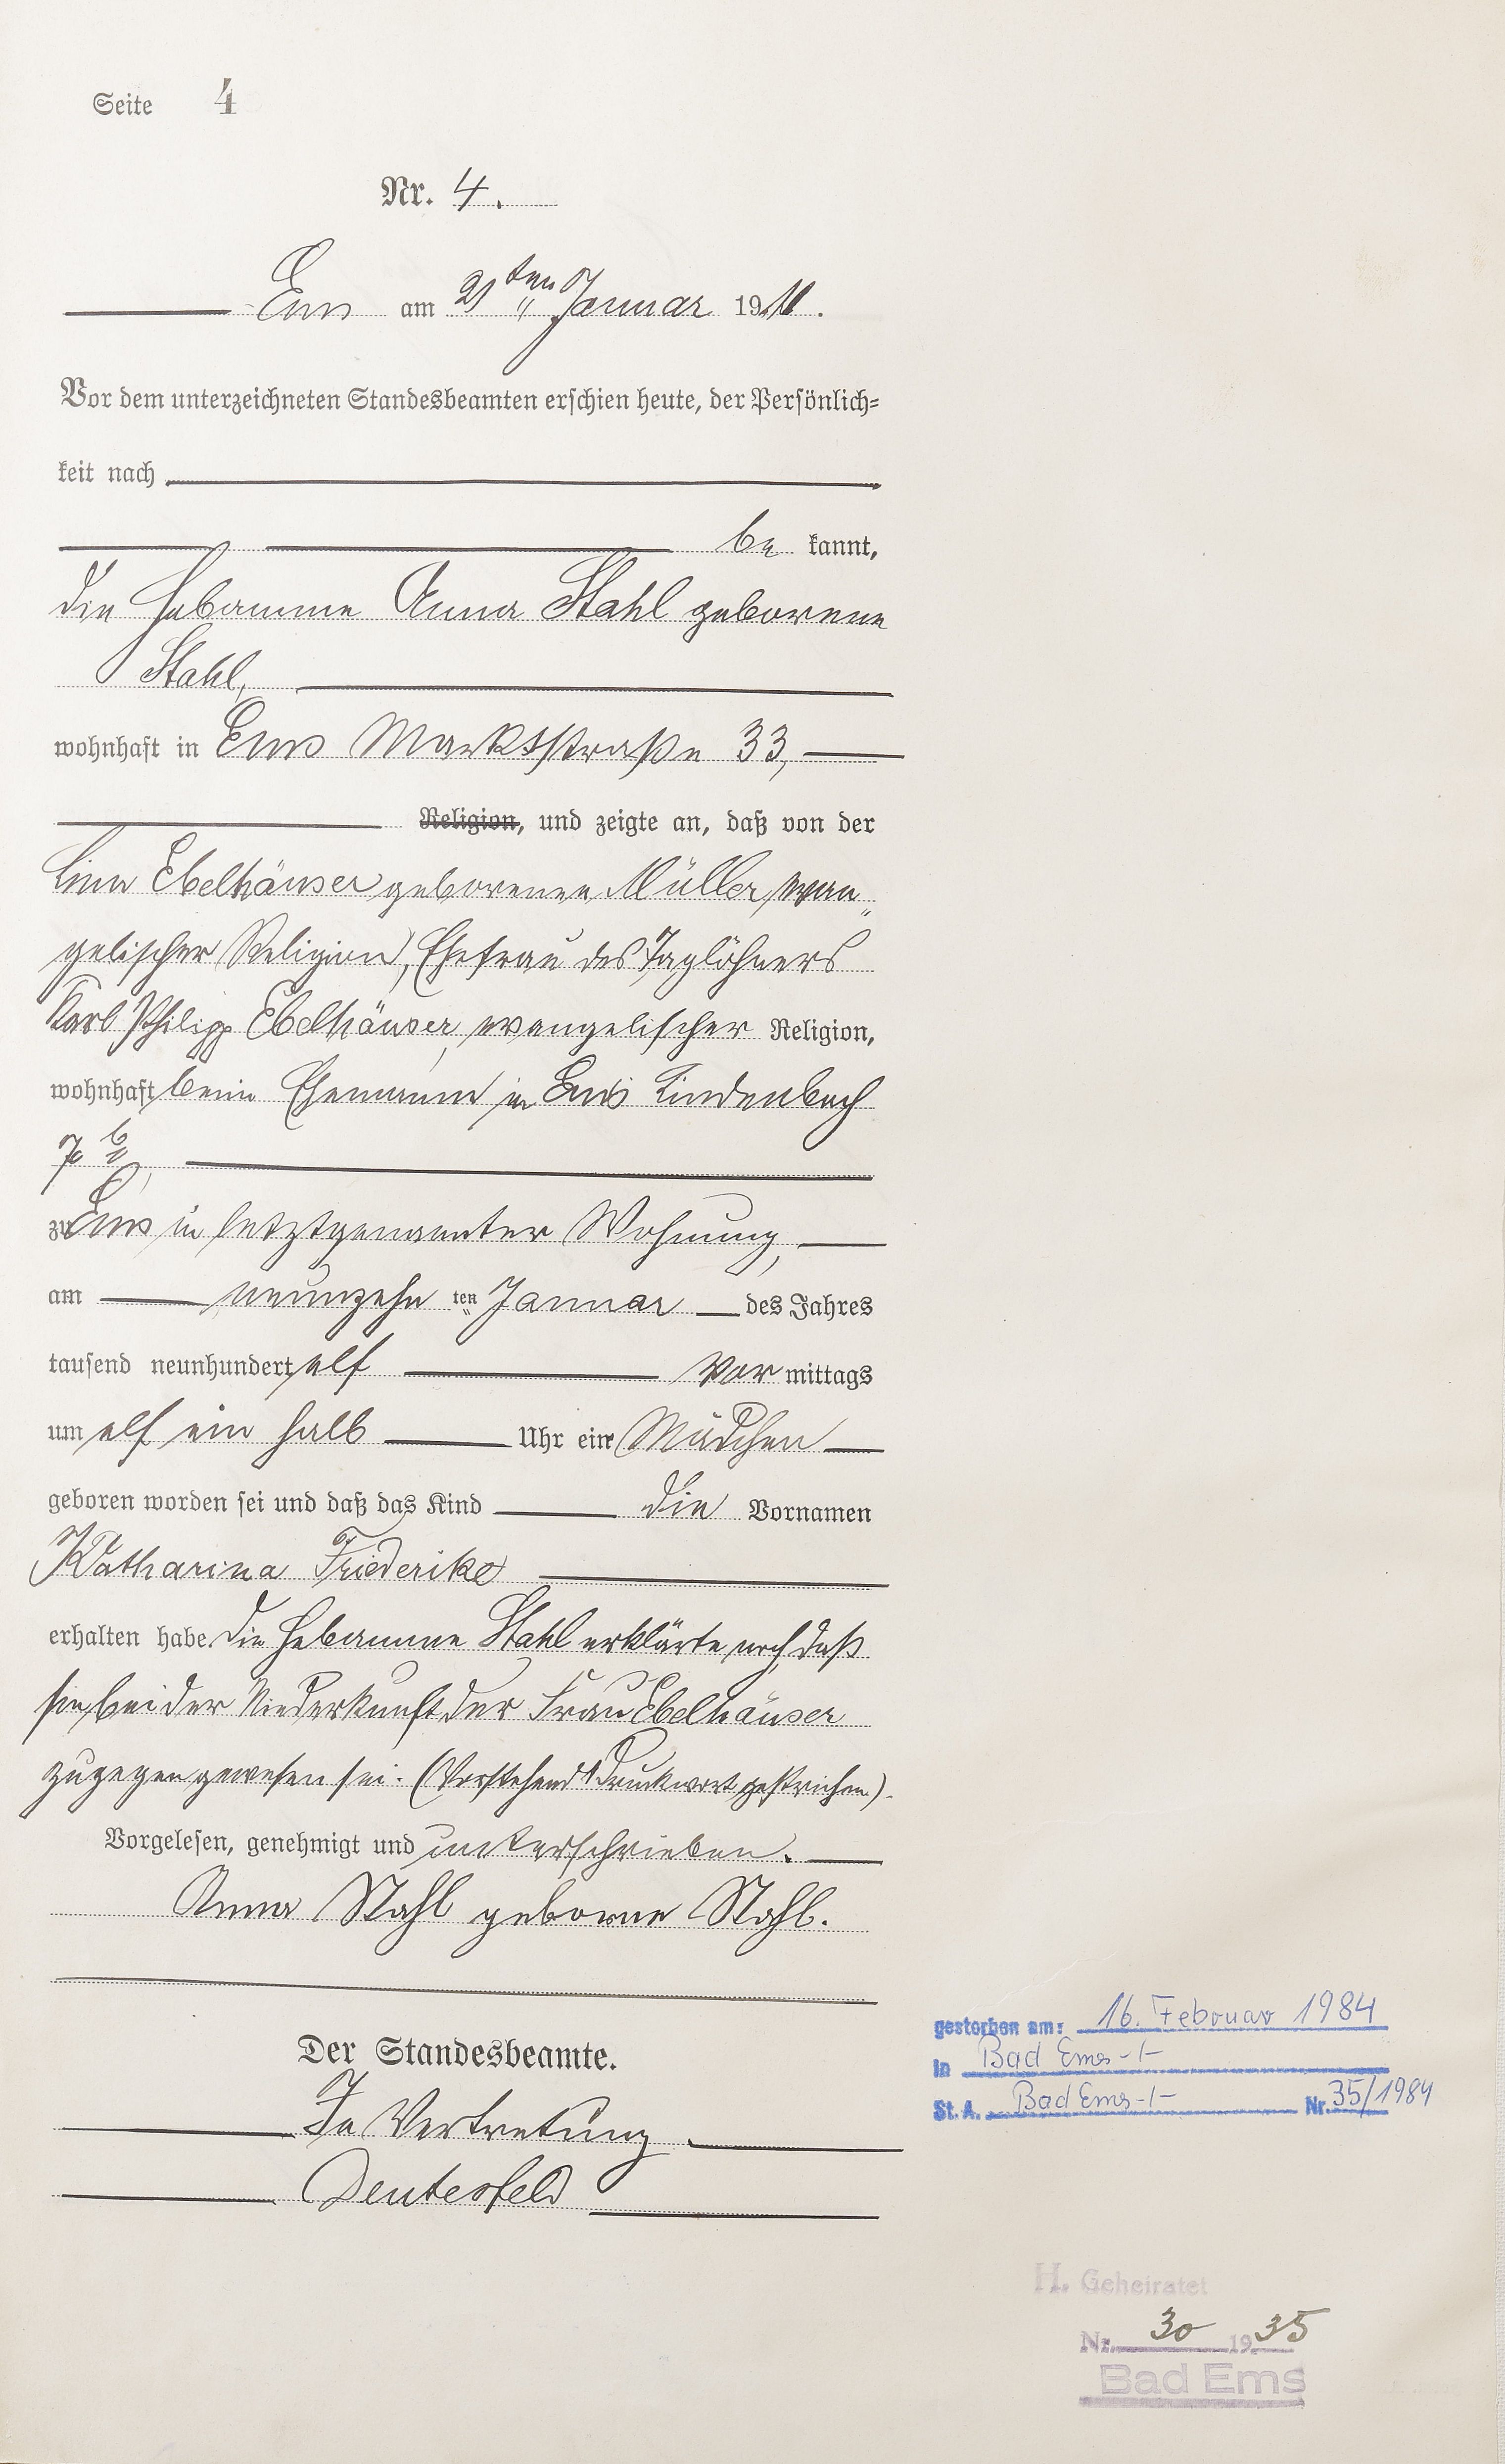 Seite 4
Nr. 4.
Ems am 21ten Januar 1911.
Vor dem unterzeichneten Standesbeamten erschien heute, der Persönlich-
keit nach
be kannt,
die Hebamme Anna Stahl geborene
Stahl,
wohnhaft in Ems Marktstraße 33,
Religion, und zeigte an, daß von der
Lina Ebelhäuser geborenen Müller, evan„
gelischer Religion, Ehefrau des Taglöhners
Karl Philipp Ebelhäuser, evangelischer Religion,
wohnhaft beim Ehemann in Ems Lindenbach
7 b,
zu Ems in letztgenannter Wohnung,
am neunzehn ten Januar des Jahres
tausend neunhundert elf Vor mittags
um elf ein halb Uhr ein Mädchen
geboren worden sei und daß das Kind die Vornamen
Katharina Friederike
erhalten habe. Die Hebamme Stahl erklärte noch, daß
sie bei der Niederkunft der Frau Ebelhäuser
zugegen gewesen sei. (Vorstehend 1 Druckwort gestrichen).
Vorgelesen, genehmigt und unterschrieben.
Anna Stahl geborne Stahl.
Der Standesbeamte.
In Vertretung.
Deutesfeld
gestorben am: 16. Februar 1984
in Bad Ems -1-
St. A. Bad Ems -1- Nr. 35/1984
H. Geheiratet
Nr. 30 1935
Bad Ems